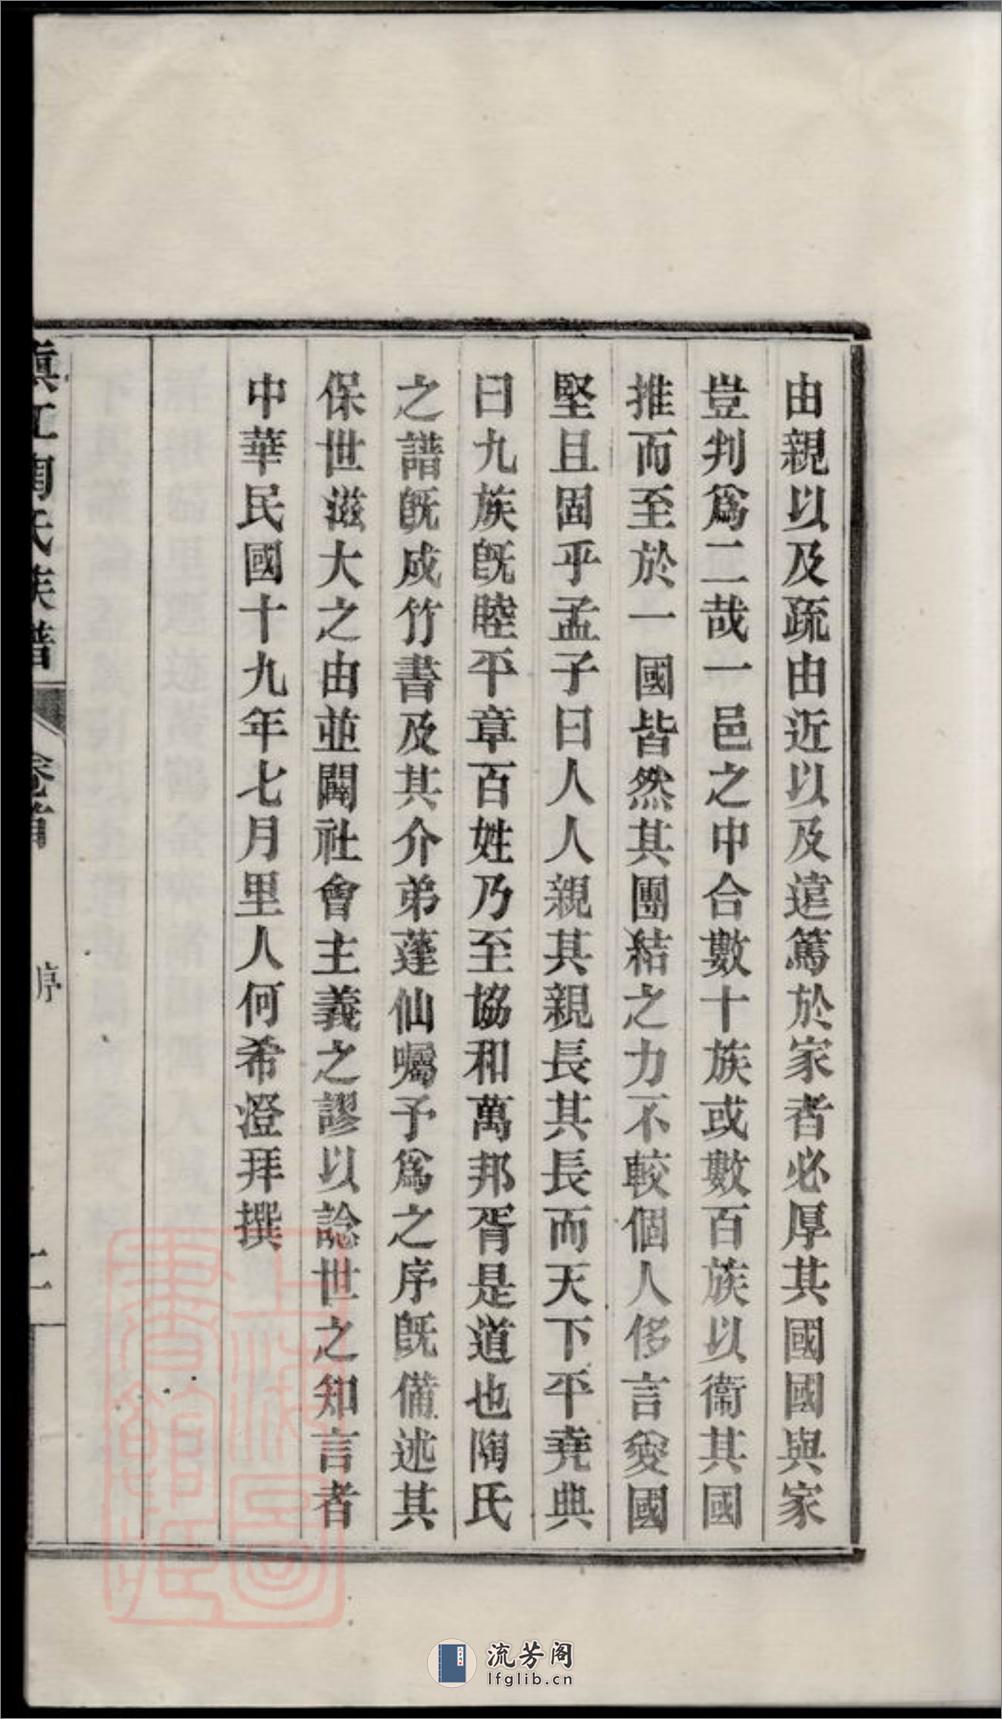 由親以及疏由近以及遠篤於家者必厚其國國與家
豈判爲二哉一邑之中合數十族或數百族以衞其國
推而至於一國皆然其團結之力不較個人侈言愛國
堅且固乎孟子曰人人親其親長其長而天下平堯典
曰九族既睦平章百姓乃至協和萬邦胥是道也陶氏
之譜既成竹書及其介弟蓬仙囑予爲之序既備述其
保世滋大之由並闢社會主義之謬以諗世之知言者
中華民國十九年七月里人何希澄拜撰
鎮江陶氏族譜
卷首
序
二
上海圖
書館藏
流芳阁
lfglib.cn